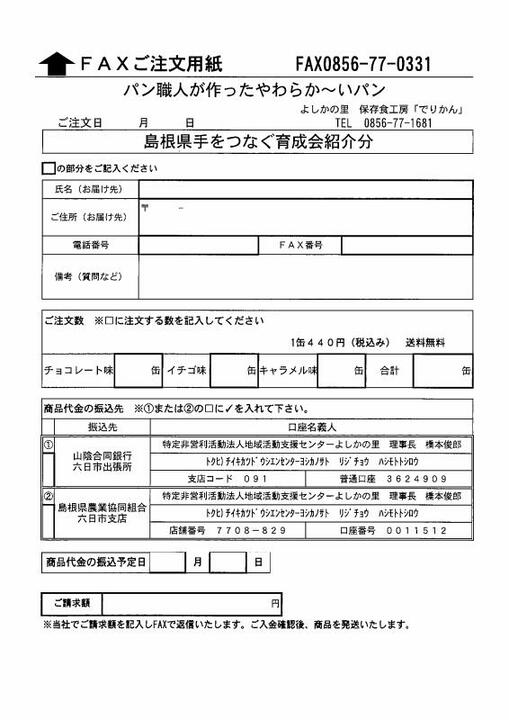 FAXご注文用紙 FAX0856-77-0331
パン職人が作ったやわらか～いパン
よしかの里 保存食工房「でりかん」
ご注文日 月 日 TEL 0856-77-1681
島根県手をつなぐ育成会紹介分
□の部分をご記入ください
氏名（お届け先）
ご住所（お届け先） 〒 －
電話番号 FAX番号
備考（質問など）
ご注文数 ※□に注文する数を記入してください
1缶440円（税込み） 送料無料
チョコレート味 缶 イチゴ味 缶 キャラメル味 缶 合計 缶
商品代金の振込先 ※①または②の□に✓を入れて下さい。
振込先 口座名義人
① 山陰合同銀行 六日市出張所
特定非営利活動法人地域活動支援センターよしかの里 理事長 橋本俊郎
ﾄｸﾋ)ﾁｲｷｶﾂﾄﾞｳｼｴﾝｾﾝﾀｰﾖｼｶﾉｻﾄ ﾘｼﾞﾁｮｳ ﾊｼﾓﾄﾄｼﾛｳ
支店コード 091 普通口座 3624909
② 島根県農業協同組合 六日市支店
特定非営利活動法人地域活動支援センターよしかの里 理事長 橋本俊郎
ﾄｸﾋ)ﾁｲｷｶﾂﾄﾞｳｼｴﾝｾﾝﾀｰﾖｼｶﾉｻﾄ ﾘｼﾞﾁｮｳ ﾊｼﾓﾄﾄｼﾛｳ
店舗番号 7708-829 口座番号 0011512
商品代金の振込予定日 月 日
ご請求額 円
※当社でご請求額を記入しFAXで返信いたします。ご入金確認後、商品を発送いたします。